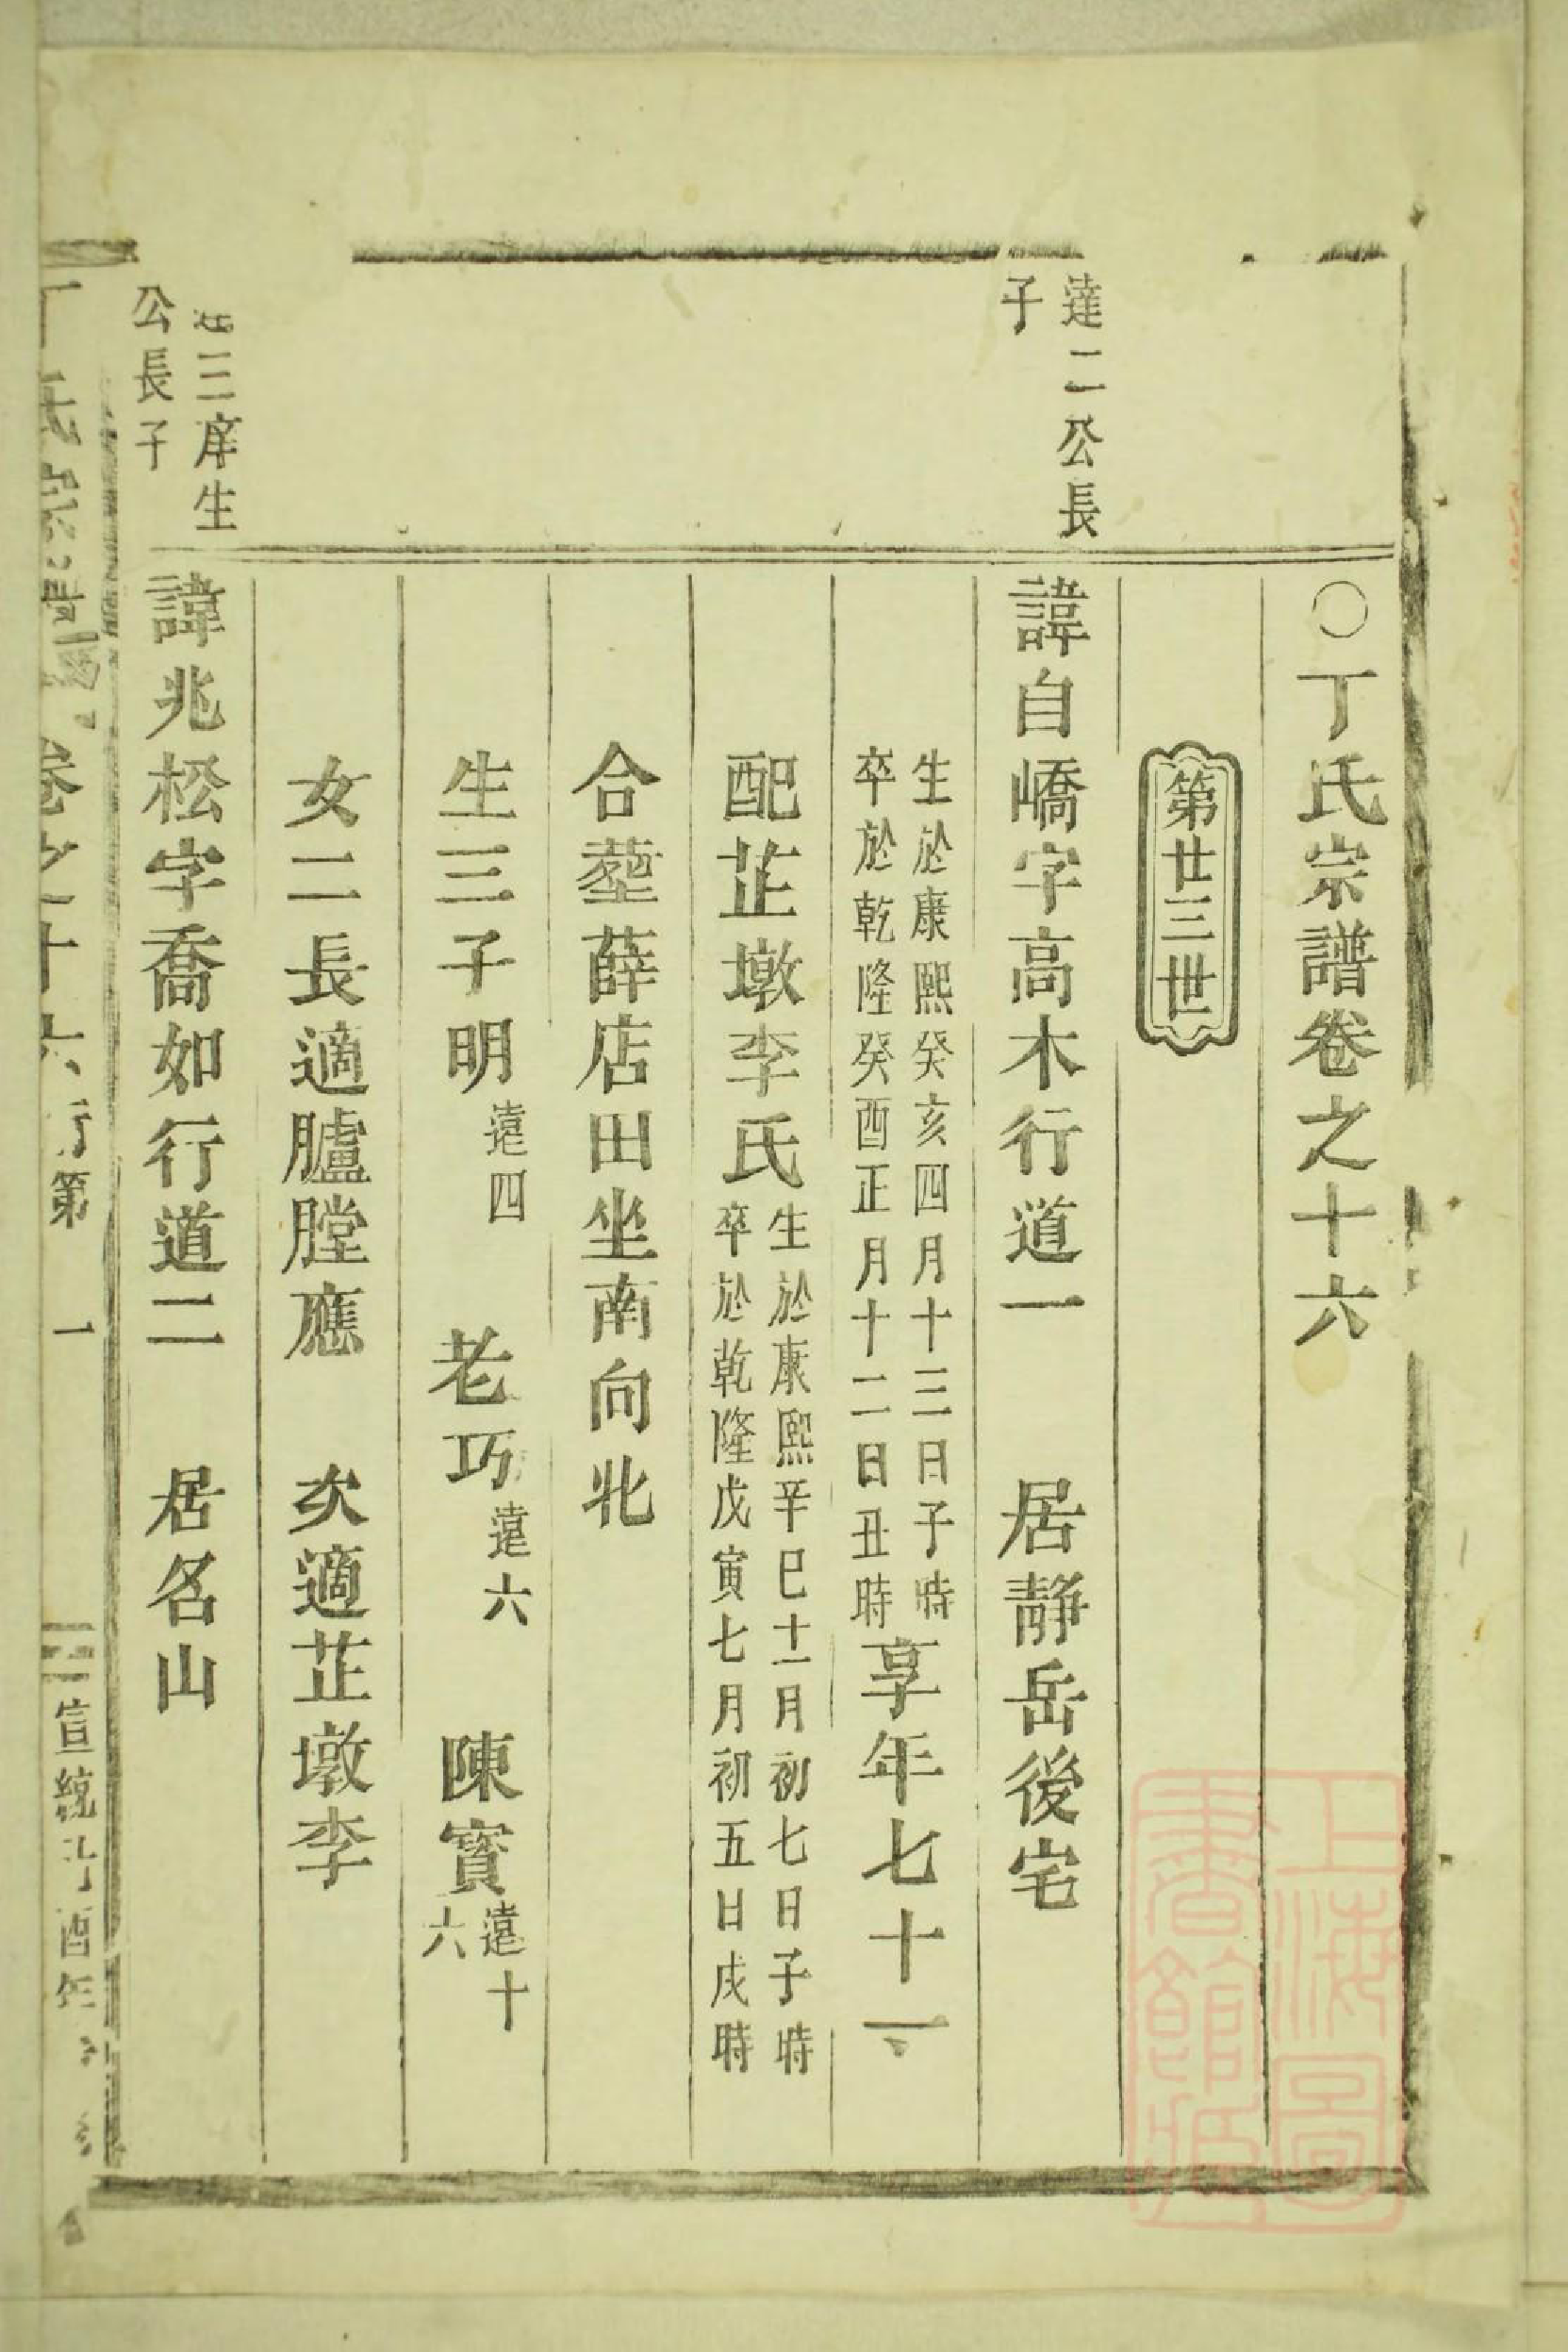 ○丁氏宗譜卷之十六
第廿三世
達二公長
子
諱自嶠字高木行道一　居靜岳後宅
生於康熙癸亥四月十三日子時
卒於乾隆癸酉正月十二日丑時
享年七十一
配芷墩李氏
生於康熙辛巳十一月初七日子時
卒於乾隆戊寅七月初五日戌時
合塟薛店田坐南向北
生三子明遠四　老巧遠六　陳寳遠十六
女二長適臚膛應　次適芷墩李
三庠生
公長子
諱兆松字喬如行道二　居名山
卷之十六 行第 一
宣統 酉年
上海圖書館藏